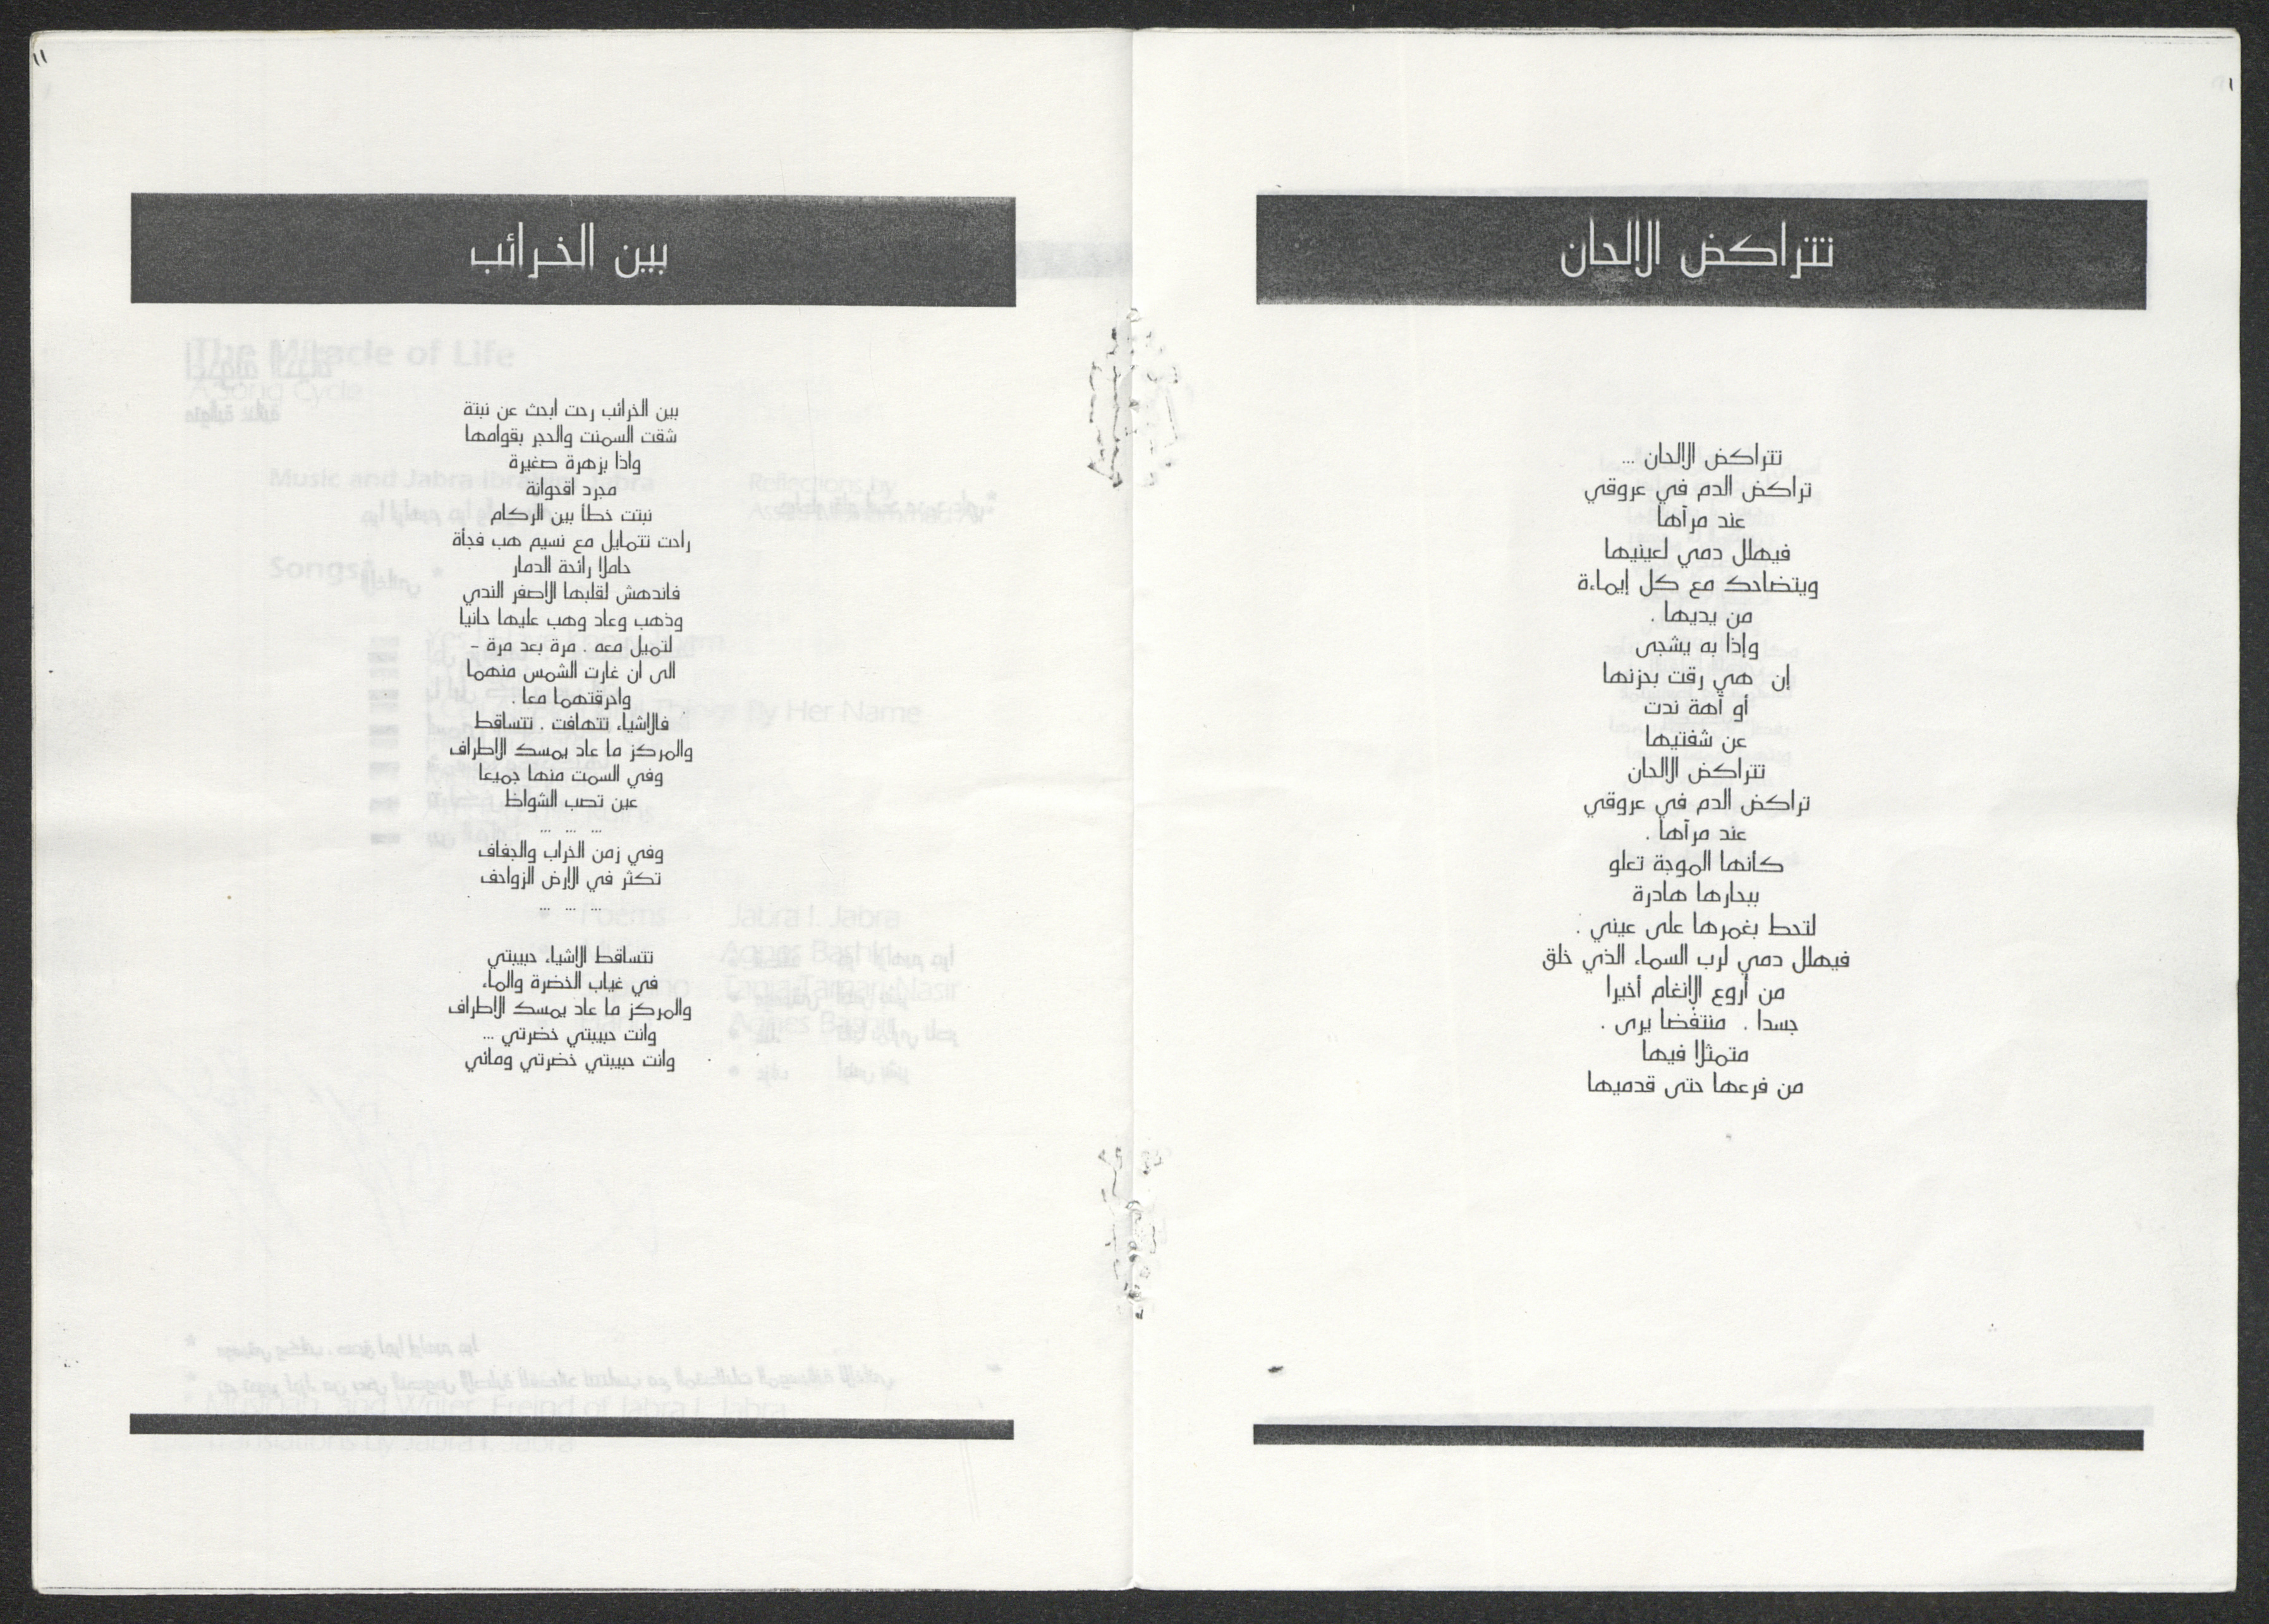 تتراكض الالحان
تتراكض الالحان ...
تراكض الدم في عروقي
عند مرآها
فيهلل دمي لعينيها
ويتضاحك مع كل إيماءة
من يديها .
وإذا به يشجى
إن هي رقت بحزنها
أو آهة ندت
عن شفتيها
تتراكض الالحان
تراكض الدم في عروقي
عند مرآها .
كأنها الموجة تعلو
ببحارها هادرة
لتحط بغمرها على عيني .
فيهلل دمي لرب السماء الذي خلق
من أروع الانغام أخيرا
جسدا . منتفضا يرى .
متمثلا فيها
من فرعها حتى قدميها
١١
بين الخرائب
بين الخرائب رحت ابحث عن نبتة
شقت السمنت والحجر بقوامها
واذا بزهرة صغيرة
مجرد اقحوانة
نبتت خطأ بين الركام
راحت تتمايل مع نسيم هب فجأة
حاملا رائحة الدمار
فاندهش لقلبها الاصفر الندي
وذهب وعاد وهب عليها حانيا
لتميل معه . مرة بعد مرة -
الى أن غارت الشمس منهما
واحرقتهما معا .
فالاشياء تتهافت . تتساقط
والمركز ما عاد يمسك الاطراف
وفي السمت منها جميعا
عين تصب الشواظ
... ... ...
وفي زمن الخراب والجفاف
تكثر في الأرض الزواحف
... ... ...
تتساقط الاشياء حبيبتي
في غياب الخضرة والماء
والمركز ما عاد يمسك الاطراف
وانت حبيبتي خضرتي ...
وانت حبيبتي خضرتي ومائي